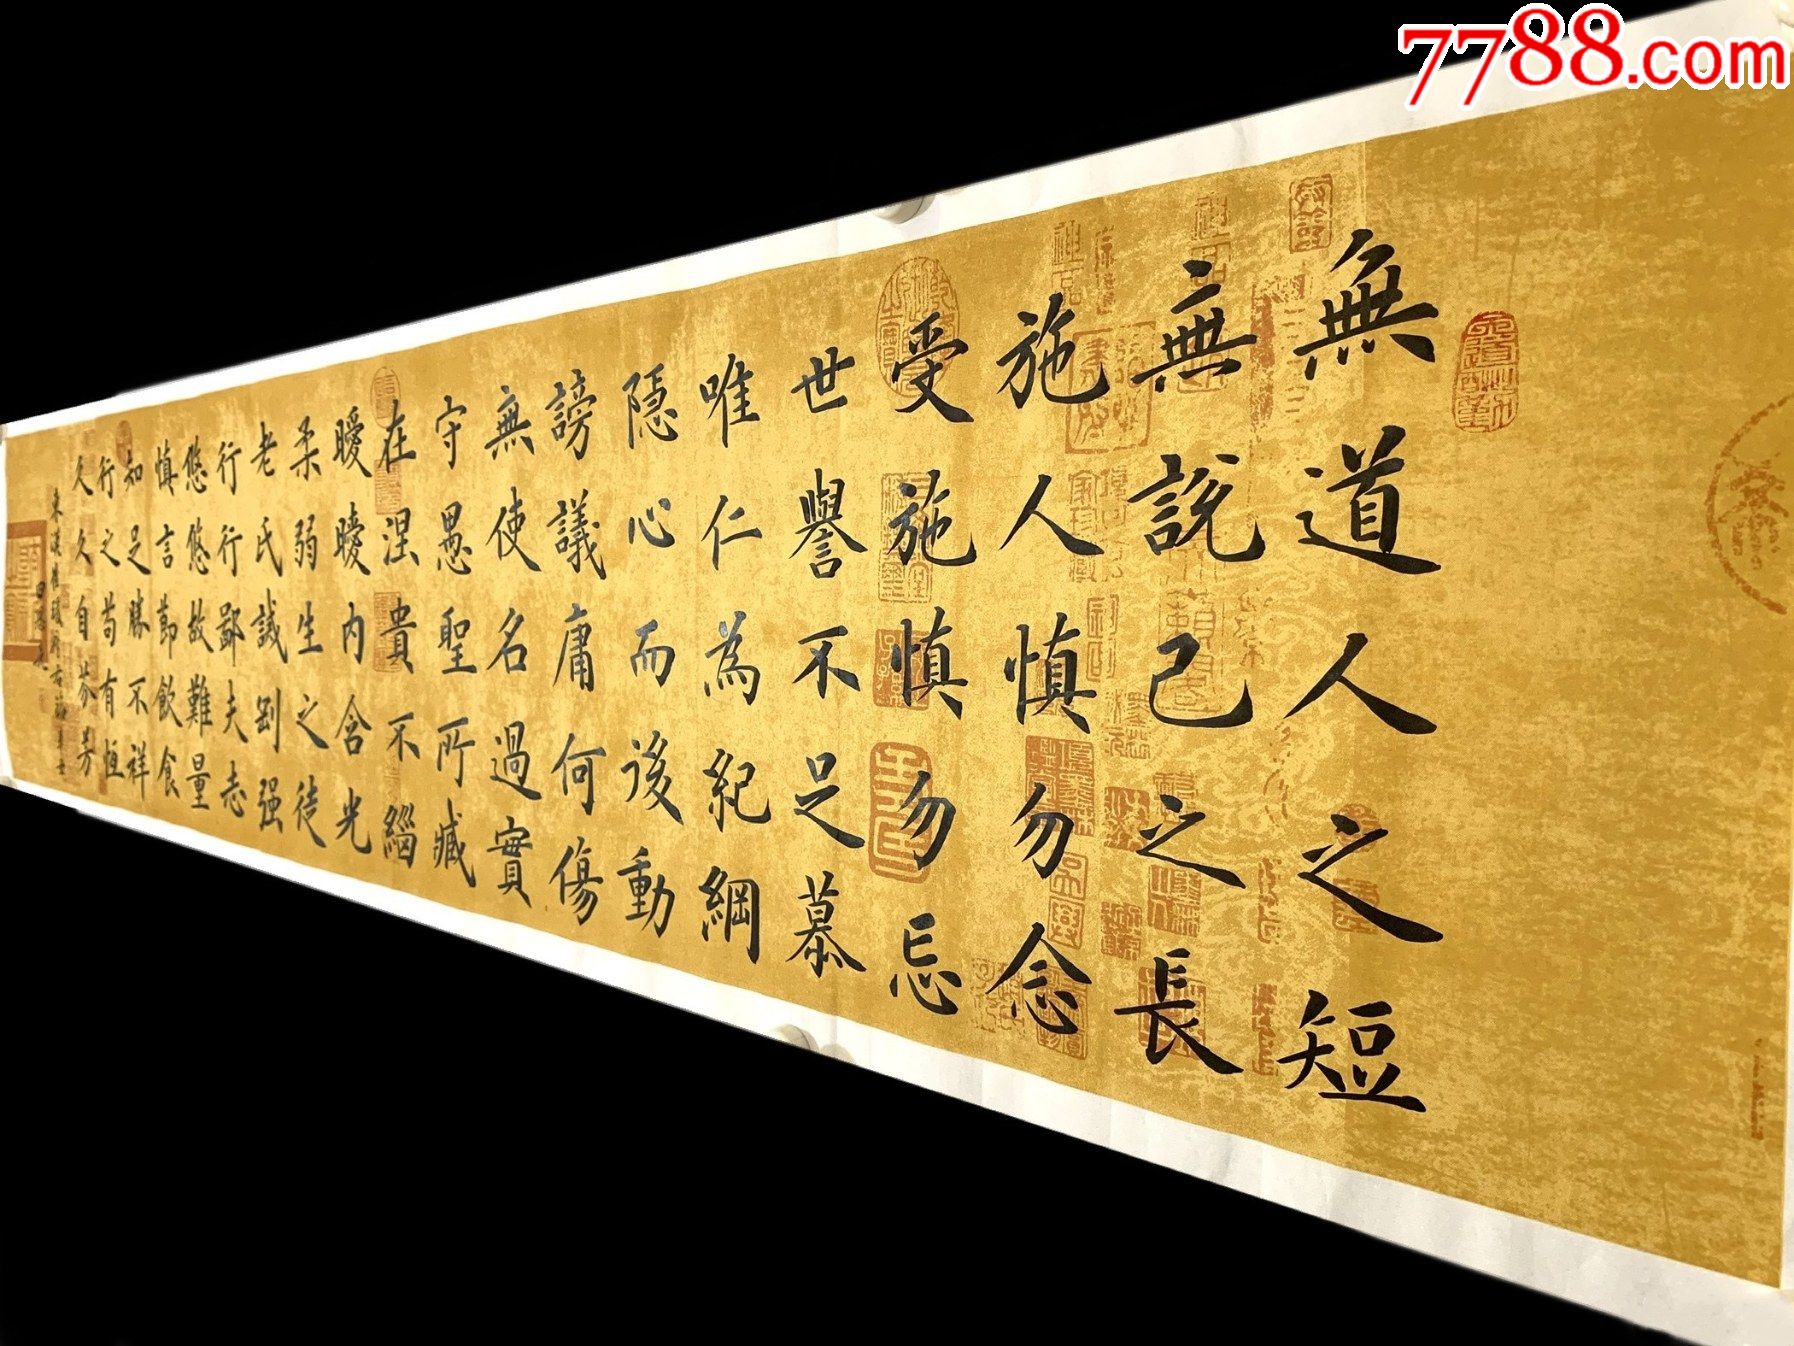 7788.com
無道人之短
無說己之長
施人慎勿念
受施慎勿忘
世譽不足慕
唯仁為紀綱
隐心而後動
謗議庸何傷
無使名過實
守愚聖所臧
在涅貴不緇
曖曖內含光
柔弱生之徒
老氏誡剛强
行行鄙夫志
悠悠故難量
慎言節飲食
知足勝不祥
行之苟有恒
久久自芬芳
東漢崔瑗